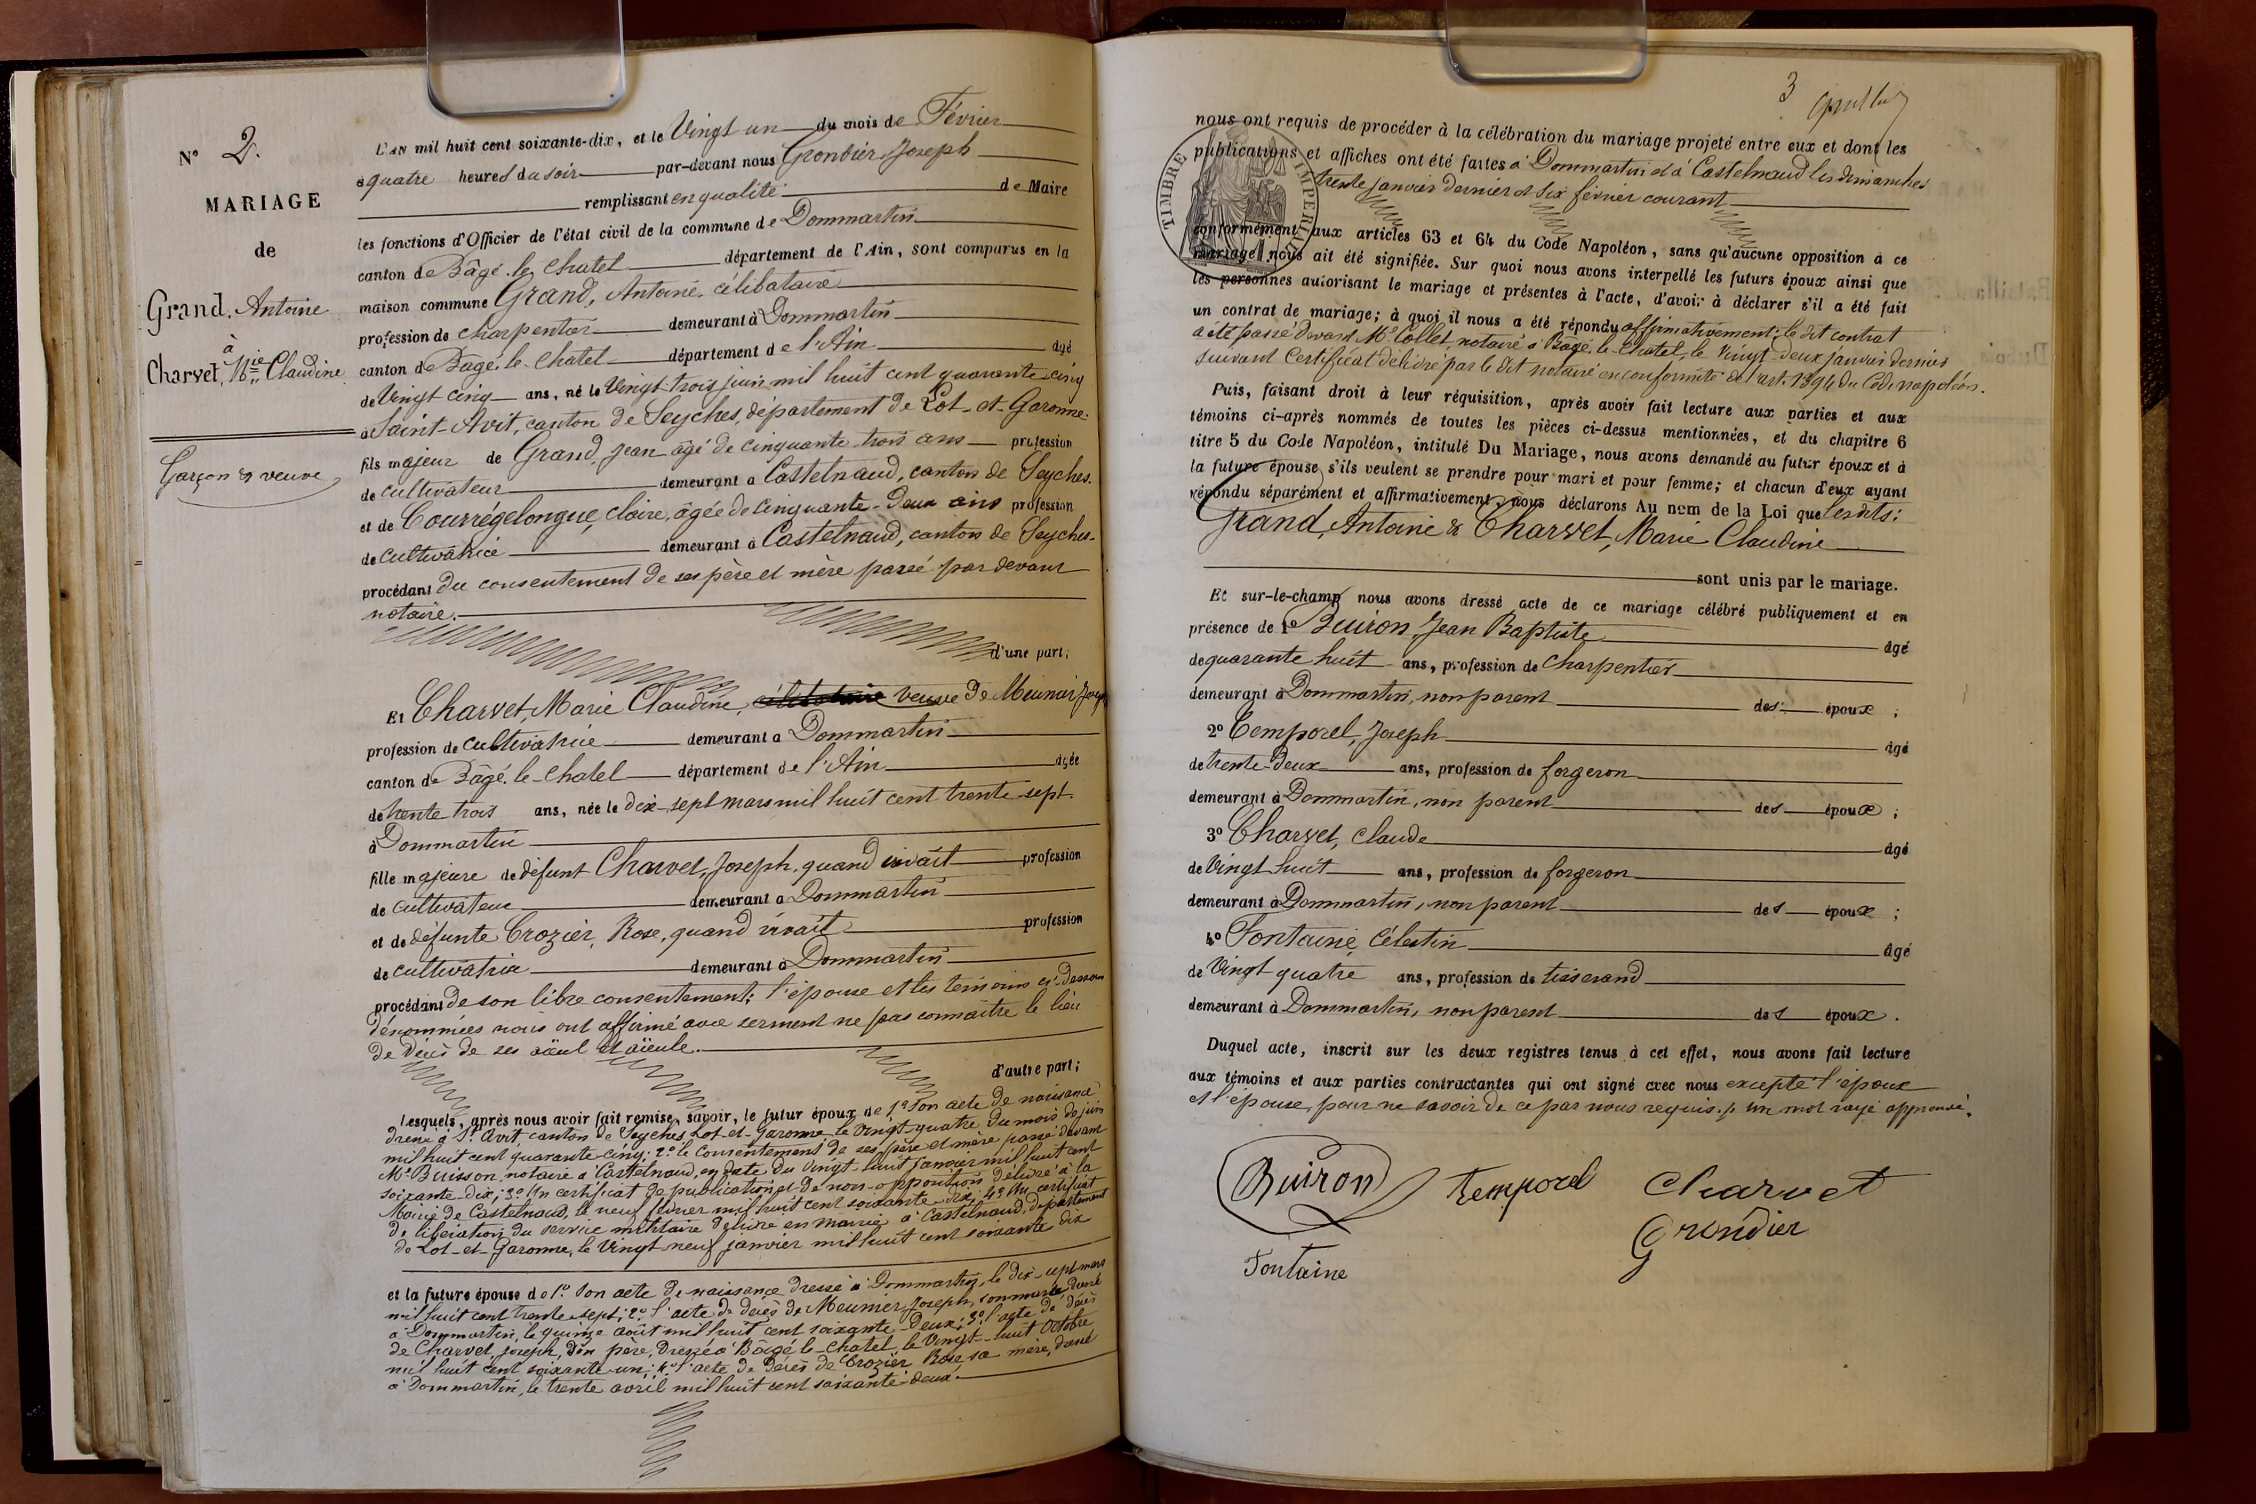 N° 2.
MARIAGE
de
Grand, Antoine
à
Charvet, Mie Claudine
Garçon & veuve
L'AN mil huit cent soixante-dix, et le Vingt un du mois de Février
à quatre heures du soir par-devant nous Grondier, Joseph
remplissant en qualité de Maire
les fonctions d'Officier de l'état civil de la commune de Dommartin
canton de Bâgé-le-Chatel département de l'Ain, sont comparus en la
maison commune Grand, Antoine, célibataire
profession de charpentier demeurant à Dommartin
canton de Bâgé-le-Chatel département de l'Ain âgé
de Vingt cinq ans, né le Vingt-trois juin mil huit cent quarante-cinq
à Saint-Avit, canton de Seyches, département de Lot-et-Garonne.
fils majeur de Grand, Jean âgé de cinquante trois ans profession
de cultivateur demeurant à Castelnaud, canton de Seyches.
et de Courrégelongue, Claire, âgée de cinquante-deux ans profession
de cultivatrice demeurant à Castelnaud, canton de Seyches.
procédant du consentement de ses père et mère passé par devant
notaire.
d'une part;
Et Charvet, Marie Claudine, célibataire veuve de Meunier Joseph
profession de cultivatrice demeurant à Dommartin
canton de Bâgé-le-Chatel département de l'Ain âgée
de trente trois ans, née le dix-sept mars mil huit cent trente-sept
à Dommartin
fille majeure de défunt Charvet, Joseph, quand vivait profession
de cultivateur demeurant à Dommartin
et de défunte Crozier, Rose, quand vivait profession
de cultivatrice demeurant à Dommartin
procédant de son libre consentement; l'épouse et les témoins ci-dessous
dénommées nous ont affirmé avec serment ne pas connaître le lieu
de décès de ses aïeul et aïeule.
d'autre part;
Lesquels, après nous avoir fait remise, savoir, le futur époux de 1° Son acte de naissance
dressé à St. Avit canton de Seyches, Lot-et-Garonne le Vingt-quatre du mois de juin
mil huit cent quarante cinq; 2° le consentement de ses père et mère passé devant
Me. Buisson, notaire à Castelnaud, en date du vingt-huit janvier mil huit cent
soixante-dix; 3° Un certificat de publication et de non-opposition délivré à la
Mairie de Castelnaud, le neuf février mil huit cent soixante-dix; 4° Un certificat
de libération du service militaire délivré en mairie à Castelnaud, département
de Lot-et-Garonne, le Vingt neuf janvier mil huit cent soixante dix
et la future épouse de 1° Son acte de naissance dressé à Dommartin, le dix-sept mars
mil huit cent trente-sept; 2° l'acte de décès de Meunier, Joseph, son mari dressé
à Dommartin, le quinze août mil huit cent soixante-deux; 3° l'acte de décès
de Charvet, Joseph, son père, dressé à Bâgé-le-Chatel, le Vingt-huit octobre
mil huit cent soixante-un; 4° l'acte de décès de Crozier Rose, sa mère, dressé
à Dommartin, le trente avril mil huit cent soixante-deux.
3
TIMBRE IMPERIAL
nous ont requis de procéder à la célébration du mariage projeté entre eux et dont les
publications et affiches ont été faites à Dommartin et à Castelnaud les dimanches
trente janvier dernier et six février courant
conformément aux articles 63 et 64 du Code Napoléon, sans qu'aucune opposition à ce
mariage nous ait été signifiée. Sur quoi nous avons interpellé les futurs époux ainsi que
les personnes autorisant le mariage et présentes à l'acte, d'avoir à déclarer s'il a été fait
un contrat de mariage; à quoi il nous a été répondu affirmativement; le dit contrat
a été passé devant Me. Collet, notaire à Bâgé-le-Chatel, le Vingt-deux janvier dernier
suivant Certificat délivré par le dit notaire en conformité de l'art. 1394 du Code napoléon.
Puis, faisant droit à leur réquisition, après avoir fait lecture aux parties et aux
témoins ci-après nommés de toutes les pièces ci-dessus mentionnées, et du chapitre 6
titre 5 du Code Napoléon, intitulé Du Mariage, nous avons demandé au futur époux et à
la future épouse s'ils veulent se prendre pour mari et pour femme; et chacun d'eux ayant
répondu séparément et affirmativement, nous déclarons Au nom de la Loi que lesdits:
Grand, Antoine & Charvet, Marie Claudine
sont unis par le mariage.
Et sur-le-champ nous avons dressé acte de ce mariage célébré publiquement et en
présence de 1° Buiron, Jean Baptiste âgé
de quarante huit ans, profession de Charpentier
demeurant à Dommartin, non parent des époux ;
2° Temporel, Joseph âgé
de trente-deux ans, profession de forgeron
demeurant à Dommartin, non parent des époux ;
3° Charvet, Claude âgé
de Vingt huit ans, profession de forgeron
demeurant à Dommartin, non parent des époux ;
4° Fontaine, Célestin âgé
de Vingt quatre ans, profession de tisserand
demeurant à Dommartin, non parent des époux.
Duquel acte, inscrit sur les deux registres tenus à cet effet, nous avons fait lecture
aux témoins et aux parties contractantes qui ont signé avec nous excepté l'époux
et l'épouse, pour ne savoir de ce par nous requis. Un mot rayé approuvé.
Buiron Temporel Charvet
Grondier
Fontaine